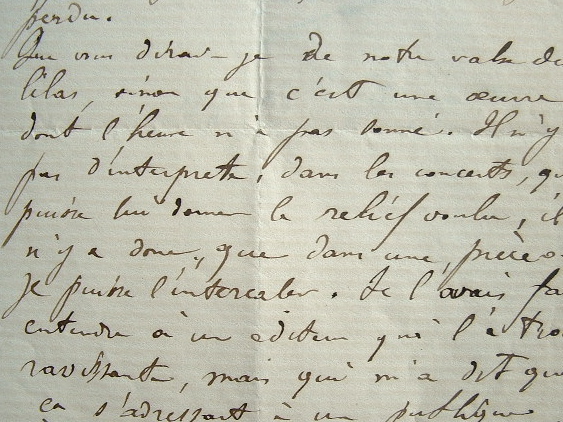 perdu.
Que vous dirai-je de notre valse de
lilas, sinon que c'est une œuvre
dont l'heure n'a pas sonné. Il n'y
pas d'interprète, dans les concerts, qu
puisse lui donner le relief voulu, il
n'y a donc, que dans une, pièce
je puisse l'intercaler. Je l'avais fa
entendre à un éditeur qui l'a trou
ravissante, mais qui m'a dit que
ça s'adressant à un publique